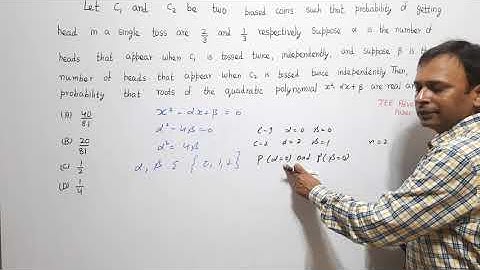 Let C₁ and C₂ be two biased coins such that probability of getting
head in a single toss are 2/3 and 1/3 respectively Suppose α is the number of
heads that appear when C₁ is tossed twice, independently, and suppose β is the
number of heads that appear when C₂ is tossed twice independently Then,
probability that roots of the quadratic polynomial x² αx + β are real an
JEE
(A) 40/81
(B) 20/81
(C) 1/2
(D) 1/4
x² - αx + β = 0
α² - 4β = 0
α² = 4β
α, β ∈ {0, 1, 2}
C-1 α=0 β=0
C-2 α=2 β=1
n=2
P(α=0) and P(β=0)